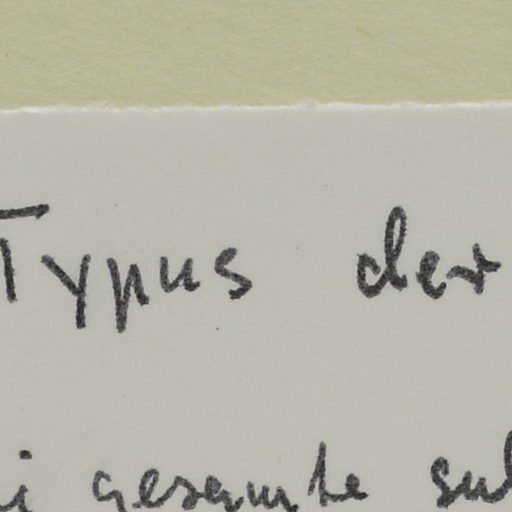 Typus der
gesamte